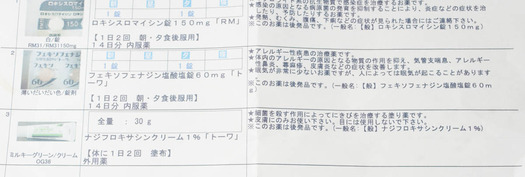 ロキシスロマイシン錠150mg「RM」
1錠 1錠
【1日2回 朝・夕食後服用】
14日分 内服薬
白/錠
RM31/RM3/150mg
★感染の原因となる病原菌の質的を
★発熱、むくみ、腹痛、下痢などの症状が見られた場合にはご連絡下さい。
★このお薬は後発品です。(一般名:【般】ロキシスロマイシン錠150mg)
2
1錠 1錠
フェキソフェナジン塩酸塩錠60mg「トーワ」
【1日2回 朝・夕食後服用】
14日分 内服薬
薄いだいだい色/錠剤
★アレルギー性疾患の治療薬です。
★体内のアレルギーの原因となる物質の作用を抑え、気管支喘息、アレルギー性鼻炎、蕁麻疹、皮膚炎などの症状を改善します。
★眠気が非常に少ないお薬ですが、人によっては眠気が起こることがあります
※このお薬は後発品です。(一般名:【般】フェキソフェナジン塩酸塩錠60m
3
全量 : 30g
ナジフロキサシンクリーム1%「トーワ」
【体に1日2回 塗布】
外用薬
ミルキーグリーン/クリーム
OG36
★細菌を殺す作用によってにきびを治療する塗り薬です。
★皮膚にのみお使い下さい。目には使用しないで下さい。
※このお薬は後発品です。(一般名:【般】ナジフロキサシンクリーム1%)